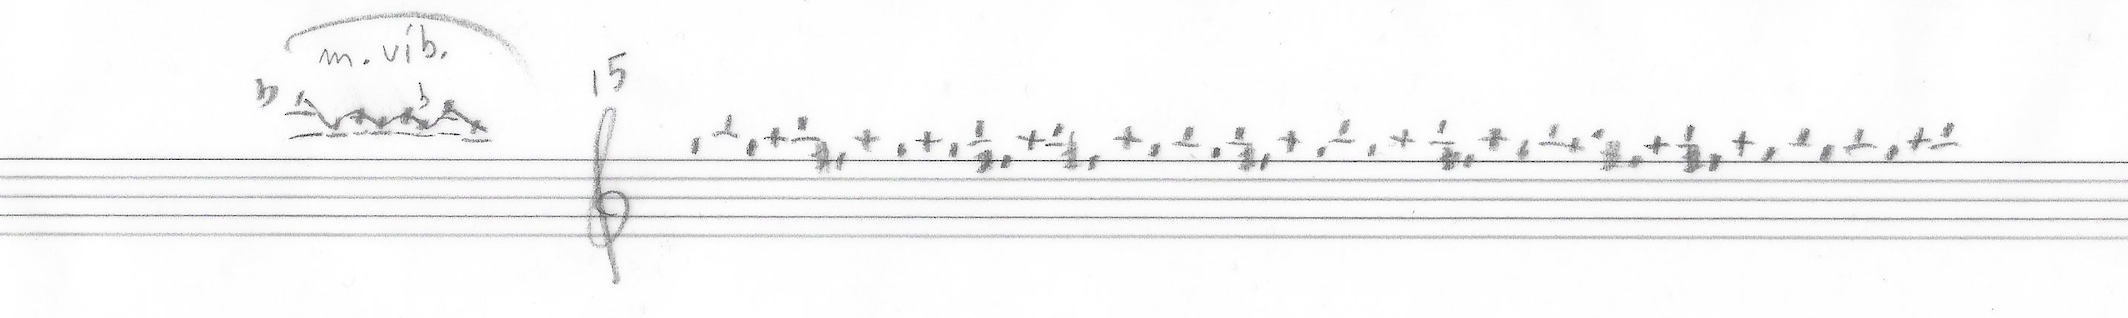 m. vib.
15